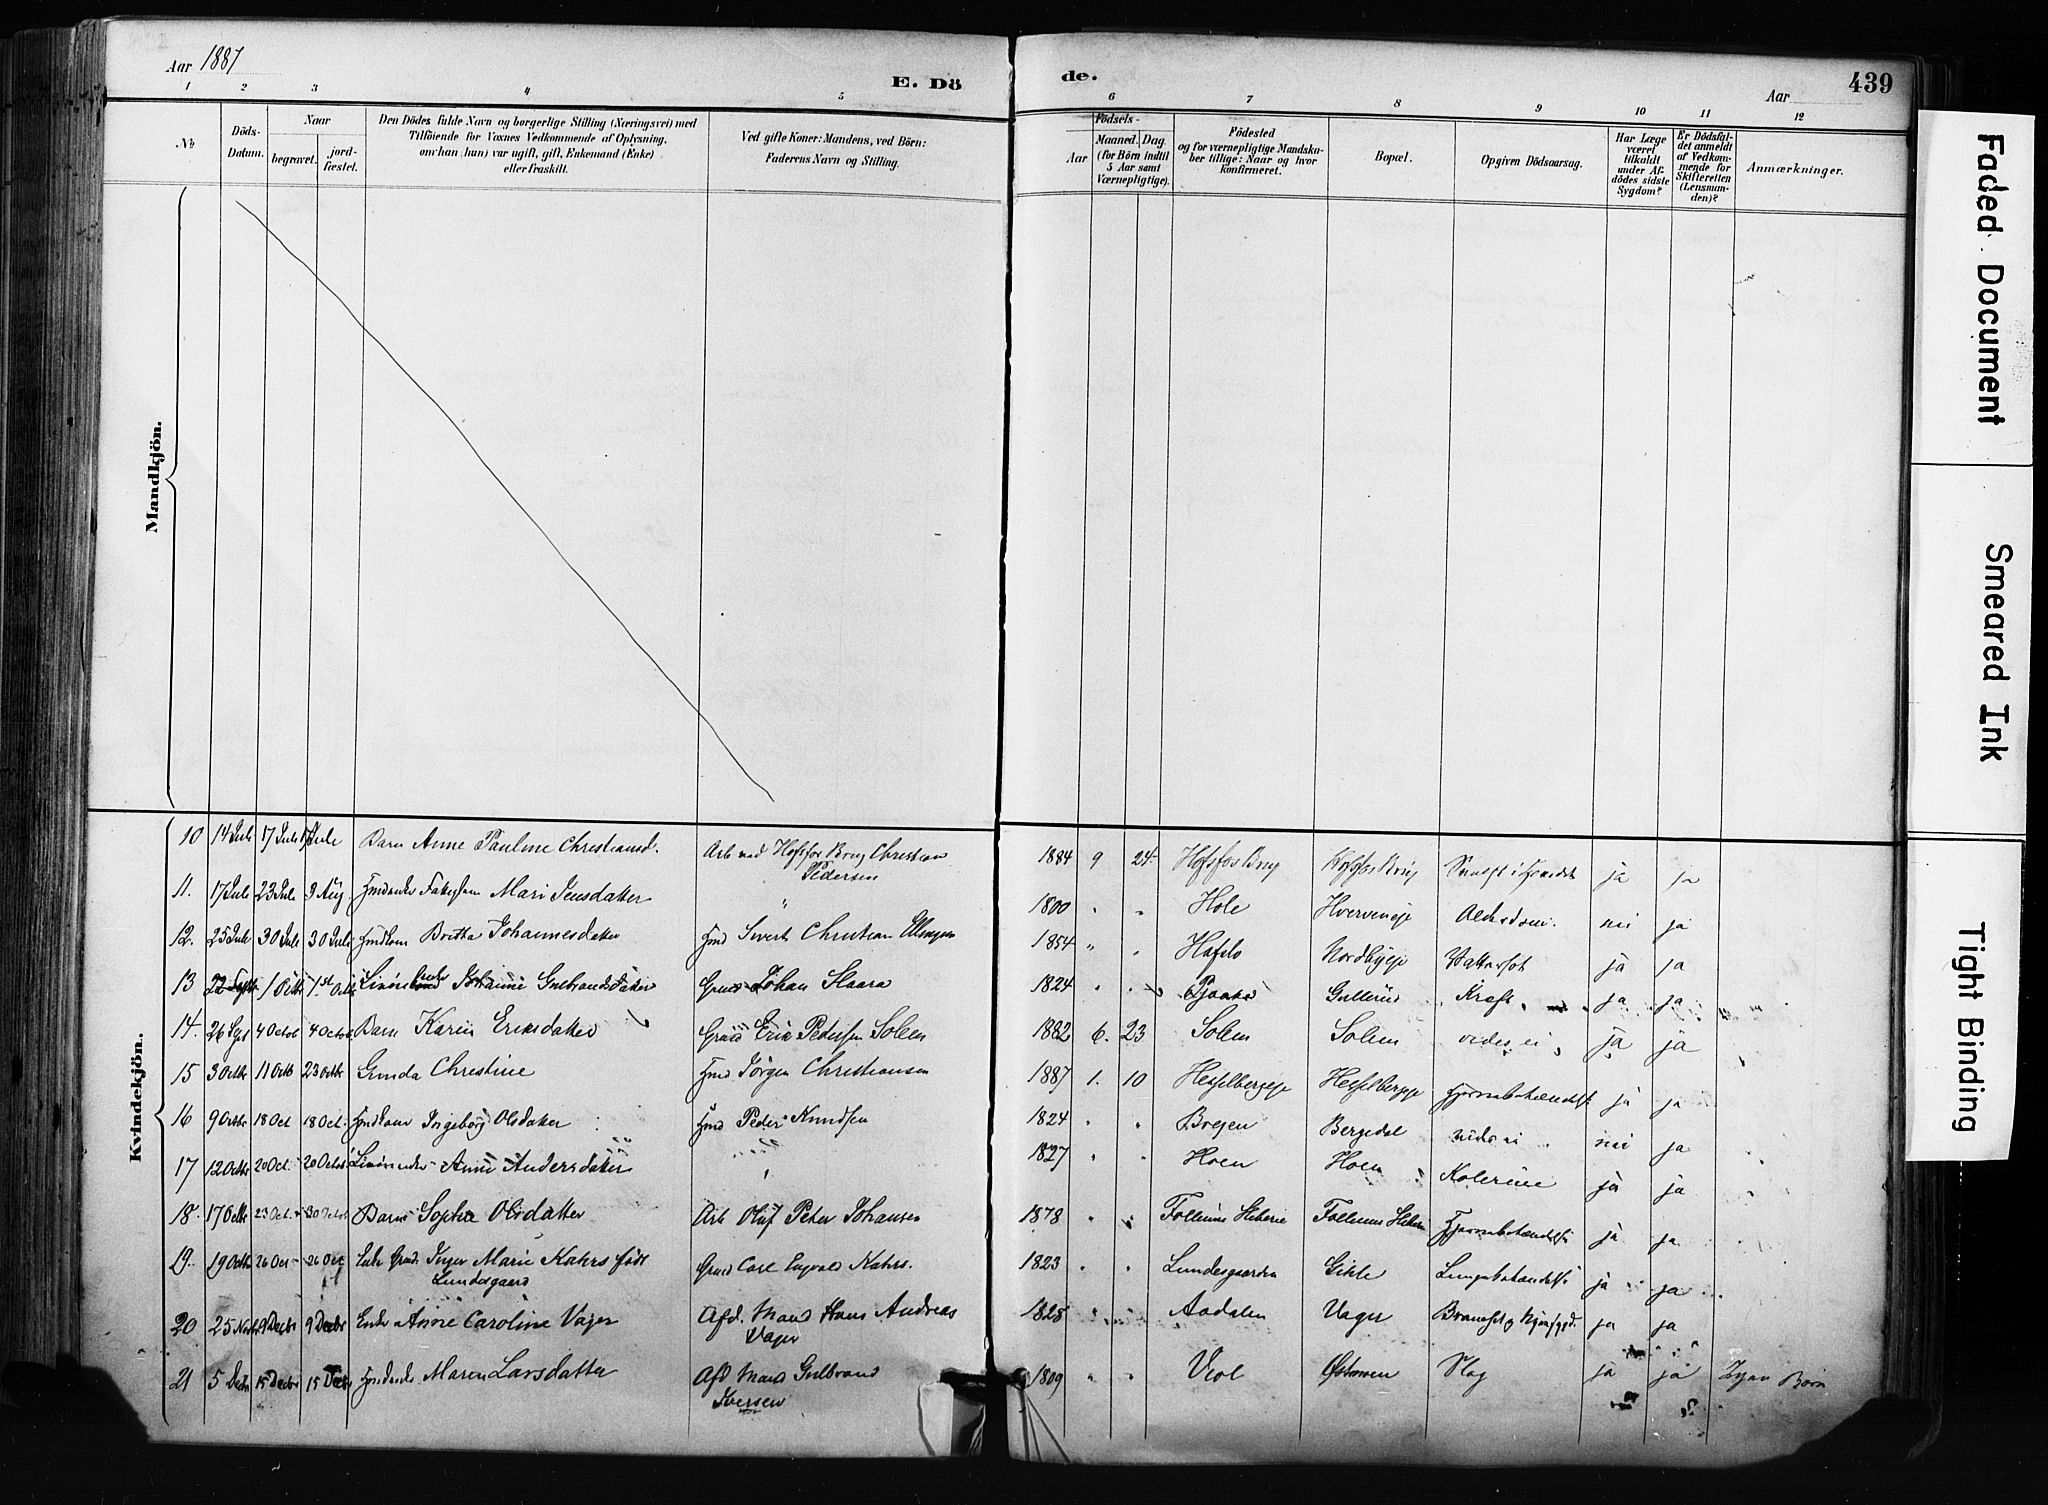 Aar 1887
E. Dö
de.
Aar
439
1 2 3 4 5 6 7 8 9 10 11 12
№
Döds-
Datum.
Naar
begravet.
jord-
fæstet.
Den Dödes fulde Navn og borgerlige Stilling (Næringsvei) med
Tilföiende for Voxnes Vedkommende af Oplysning,
om han (hun) var ugift, gift, Enkemand (Enke)
eller fraskilt.
Ved gifte Koner: Mandens, ved Börn:
Faderens Navn og Stilling.
Födsels-
Aar
Maaned. Dag
(for Börn indtil
5 Aar samt
Værnepligtige).
Födested
og for værnepligtige Mandska-
ber tillige: Naar og hvor
konfirmeret.
Bopæl.
Opgiven Dödsaarsag.
Har Læge
været
tilkaldt
under Af-
dödes sidste
Sygdom?
Er Dödsfal-
det anmeldt
af Vedkom-
mende for
Skifteretten
(Lensman-
den)?
Anmærkninger.
Mandkjön.
Kvindekjön.
10 14 Juli 17 Juli 17 Juli Barn Anne Pauline Christiansd. Arb ved Hofsfos Brug Christian 1884 9 24 Hofsfos Brug Hofsfos Brug ja ja
Pedersen
11. 17 Juli 23 Juli 3 Aug Mari Jensdatter " 1800 " " Hole nei ja
12. 25 Juli 30 Juli 30 Juli Britta Johannesdatter Sivert Christian 1854 " " Hafslo Nordbyeje Vattersot ja ja
13 22 Sept 1 Octbr 1st Octb Johanne Gulbrandsdatter Johan Skaara 1824 " " Gullerud Kræft ja ja
14. 26 Spt 4 Octob 4 Octob Barn Karin Eriksdatter Grusd Erik Pedersen Solem 1882 6. 23 Solem Solem vides ei ja ja
15 3 Octbr 11 Octb 23 Octbr Gunda Christine Jørgen Christiansen 1887 1. 10 Hesselbergeje Hesselbergeje Hjernebetændelse ja ja
16 9 Octbr 18 Oct 18 Oct. Ingeborg Olsdatter Peder Knudsen 1824 " " Bergedal vides ei nei ja
17 12 Octbr 20 Oct. 20 Octob Anne Andersdatter " 1827 " " Hoen Hoen Kolerine ja ja
18. 17 Octbr 23 Oct. 30 Octob Barn Sophie Olsdatter Arb Olaf Peter Johansen 1878 " " Follums Sliberie Follums Sliberi Hjernebetændelse ja ja
19. 19 Octbr 26 Oct 26 Oct Enke Inger Marie Kahrs født Carl Kahrs. 1823 " " Lundesgaarden Gihle Lungebetændelse ja ja
Lundesgaard
20 25 Novbr 9 Decbr 9 Decbr Enke Anne Caroline Vager Afd. Mand Hans Andreas 1828 " " Aadalen Vager ja ja
Vager
21 5 Decbr 15 Decbr 15 Decbr Maren Larsdatter Afd Mand Gulbrand 1809 " " Viol Østmoen Slag ja ja Børn
Iversen
Faded Document
Smeared Ink
Tight Binding